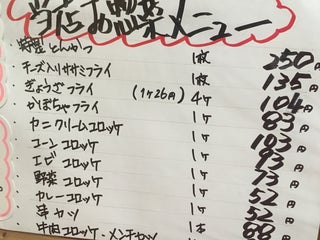 当店お惣菜メニュー
特製とんかつ 1枚 250円
チーズ入りササミフライ 1枚 135円
ぎょうざフライ (1ケ26円) 4ケ 104円
かぼちゃフライ 1ケ 83円
カニクリームコロッケ 1ケ 103円
コーンコロッケ 1ケ 93円
エビコロッケ 1ケ 73円
野菜コロッケ 1ケ 52円
カレーコロッケ 1ケ 52円
串カツ 1本 88円
牛肉コロッケ・メンチカツ